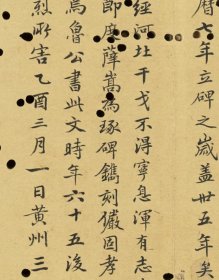 曆七年立碑之歲蓋卅五年矣
經河北干戈不得寧息渾有志
即度薛嵩為琢碑鐫刻儼因孝
焉魯公書此文時年六十五後
烈所害乙酉三月一日黃州三